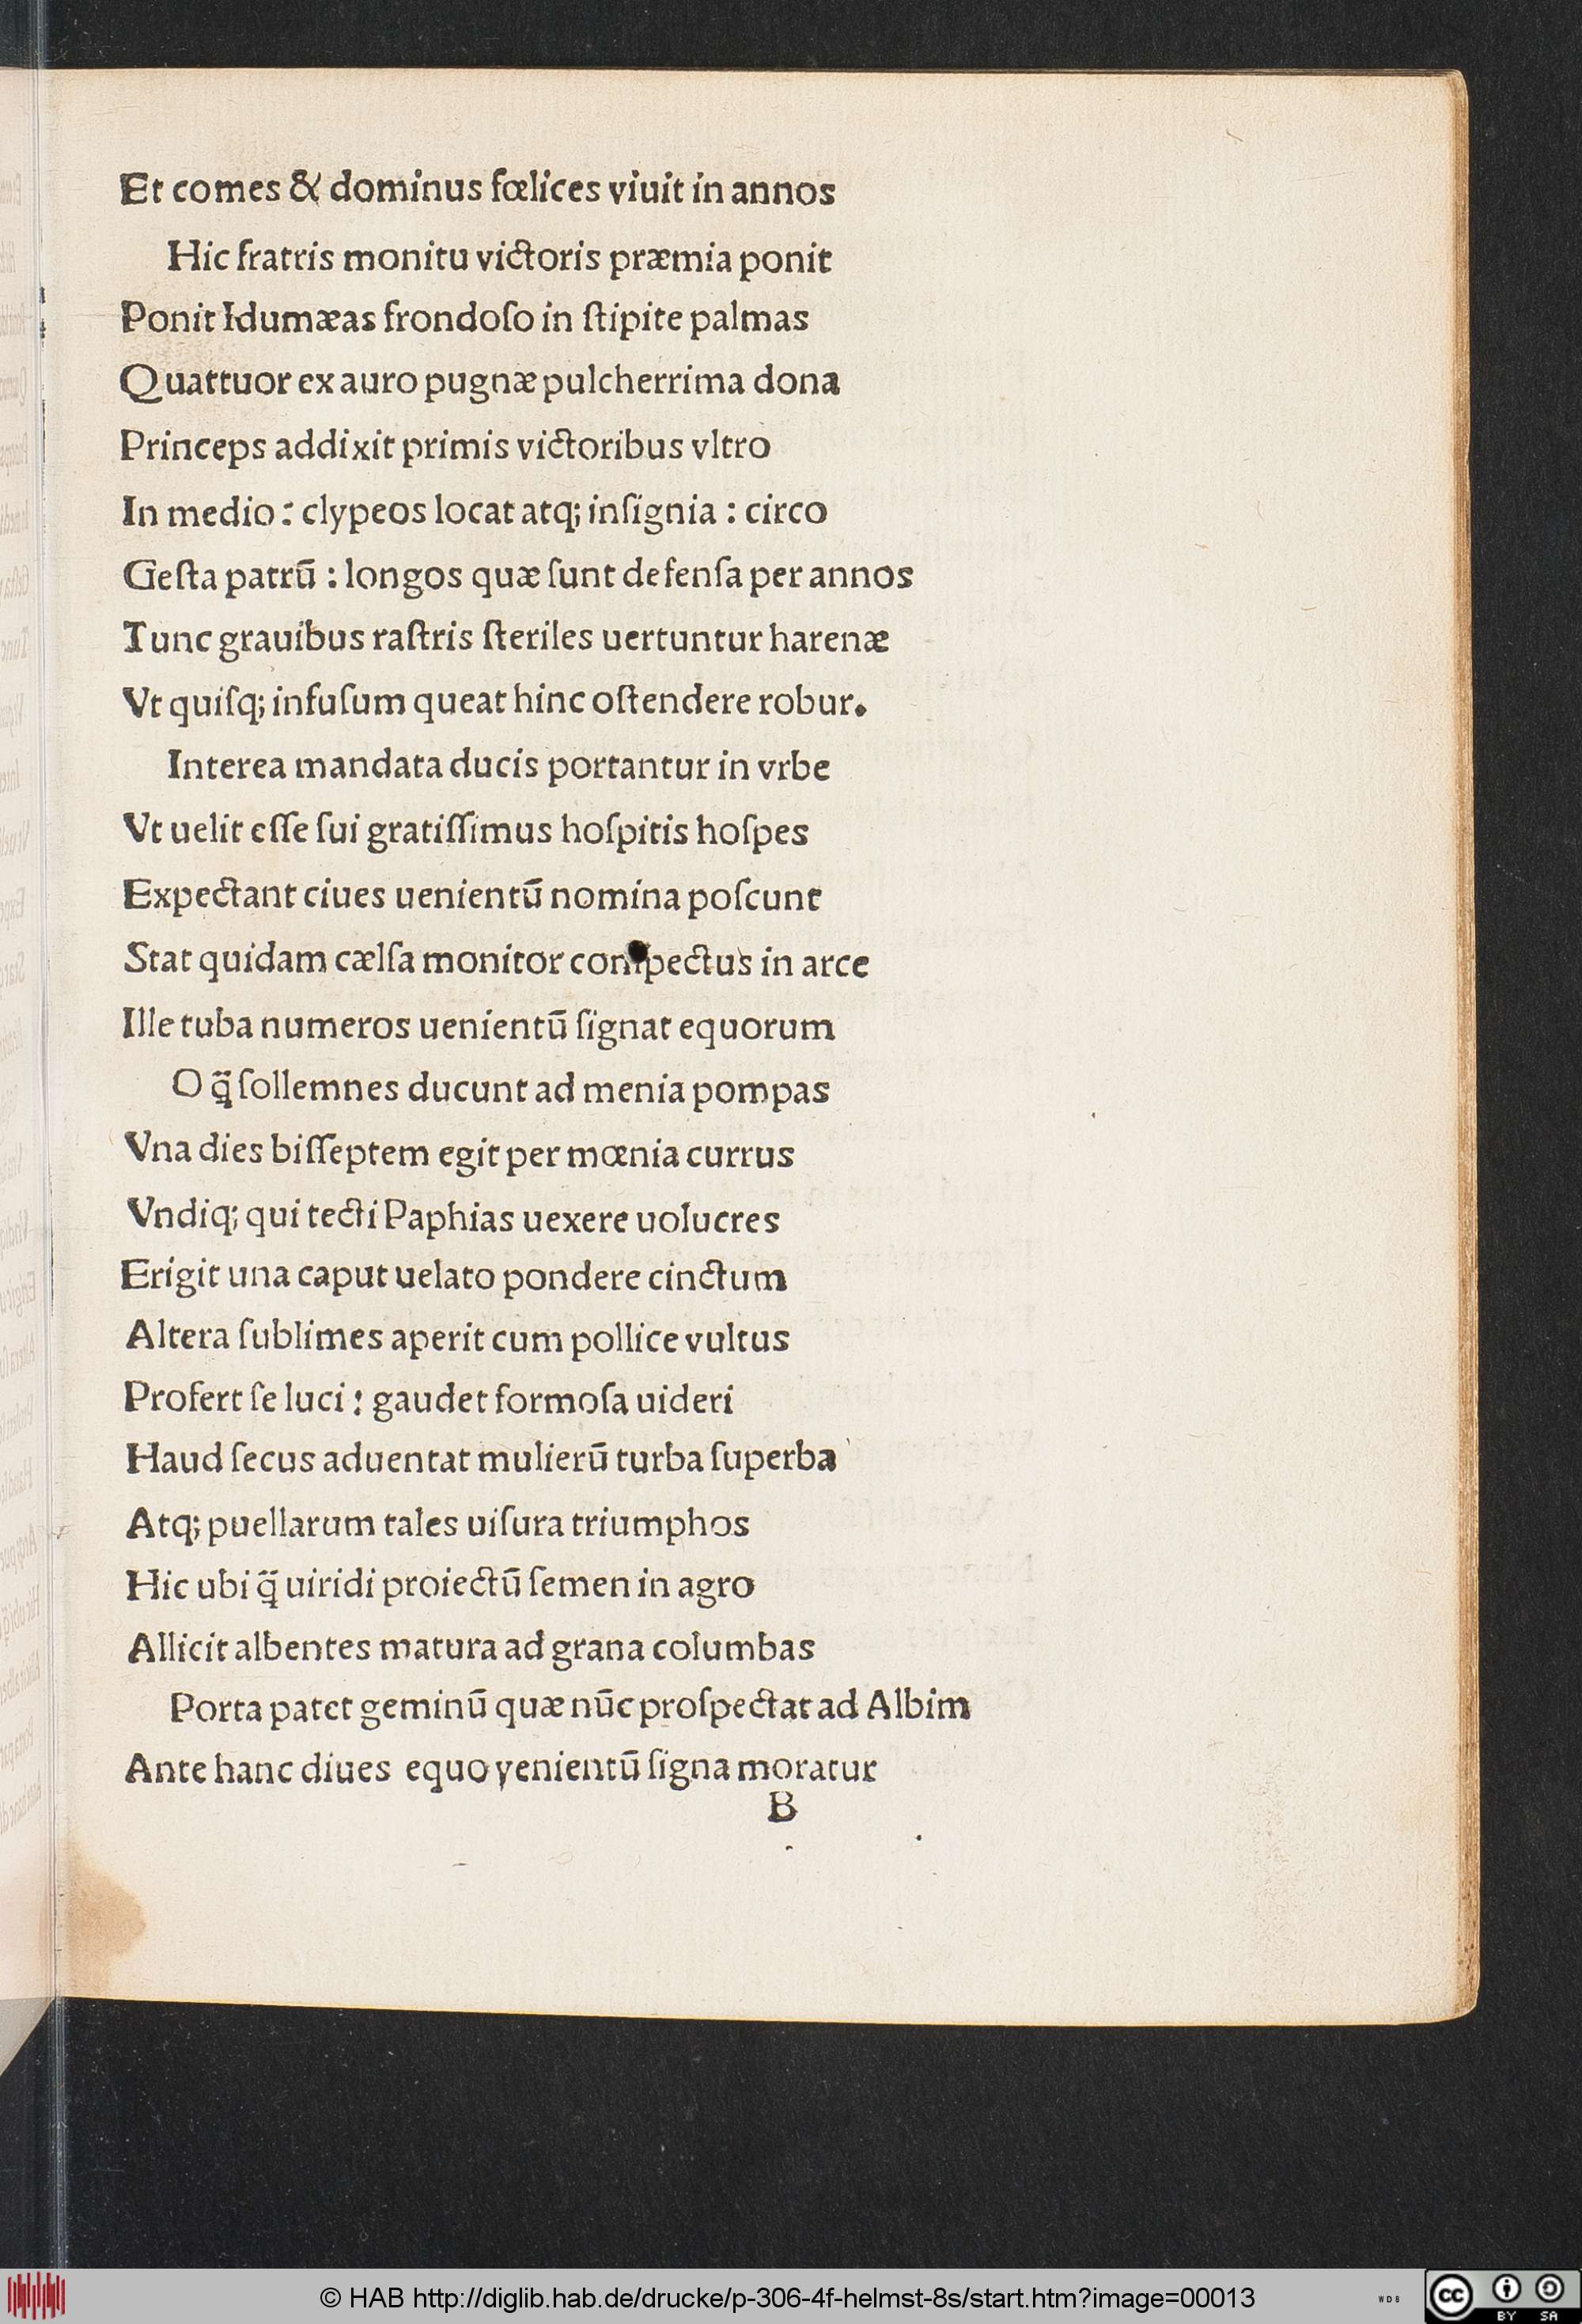 Et comes & dominus fœlices viuit in annos
Hic fratris monitu victoris præmia ponit
Ponit Idumæas frondoſo in ſtipite palmas
Quattuor ex auro pugnæ pulcherrima dona
Princeps addixit primis victoribus vltro
In medio : clypeos locat atq; inſignia : circo
Geſta patrū : longos quæ ſunt defenſa per annos
Tunc grauibus raſtris ſteriles uertuntur harenæ
Vt quiſq; infuſum queat hinc oſtendere robur.
Interea mandata ducis portantur in vrbe
Vt uelit eſſe ſui gratiſſimus hoſpitis hoſpes
Expectant ciues uenientū nomina poſcunt
Stat quidam cælſa monitor conſpectus in arce
Ille tuba numeros uenientū ſignat equorum
O q̃ ſollemnes ducunt ad menia pompas
Vna dies biſſeptem egit per mœnia currus
Vndiq; qui tecti Paphias uexere uolucres
Erigit una caput uelato pondere cinctum
Altera ſublimes aperit cum pollice vultus
Profert ſe luci : gaudet formoſa uideri
Haud ſecus aduentat mulierū turba ſuperba
Atq; puellarum tales uiſura triumphos
Hic ubi q̃ uiridi proiectū ſemen in agro
Allicit albentes matura ad grana columbas
Porta patet geminū quæ nūc proſpectat ad Albim
Ante hanc diues equo venientū ſigna moratur
B
© HAB http://diglib.hab.de/drucke/p-306-4f-helmst-8s/start.htm?image=00013
WDB
cc
BY SA